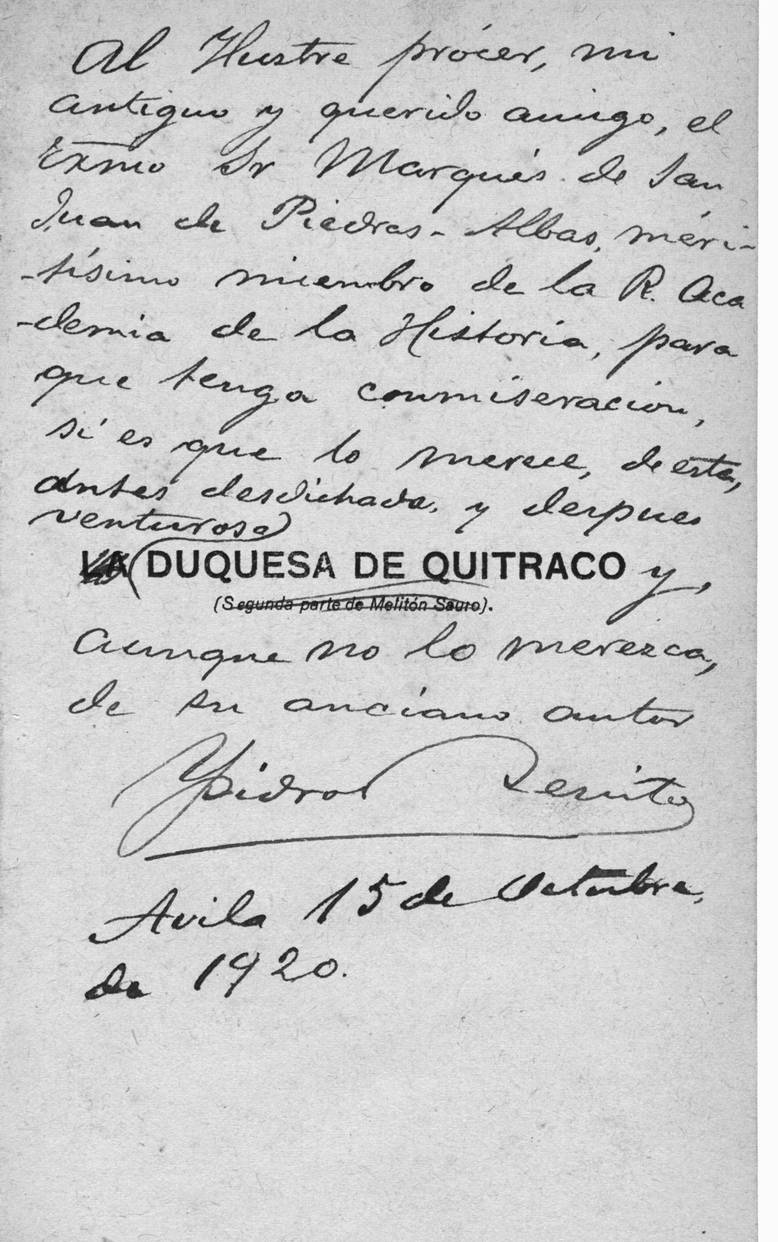 Al Ilustre prócer, mi
antiguo y querido amigo, el
Exmo Sr Marqués de San
Juan de Piedras-Albas, méri-
-tísimo miembro de la R. Aca
-demia de la Historia, para
que tenga conmiseración,
si es que lo merece, de esta,
antes desdichada, y despues
venturosa
LA DUQUESA DE QUITRACO y,
(Segunda parte de Melitón Sauro).
aunque no lo merezca,
de su anciano autor
Ysidro Benito
Avila 15 de Octubre,
de 1920.